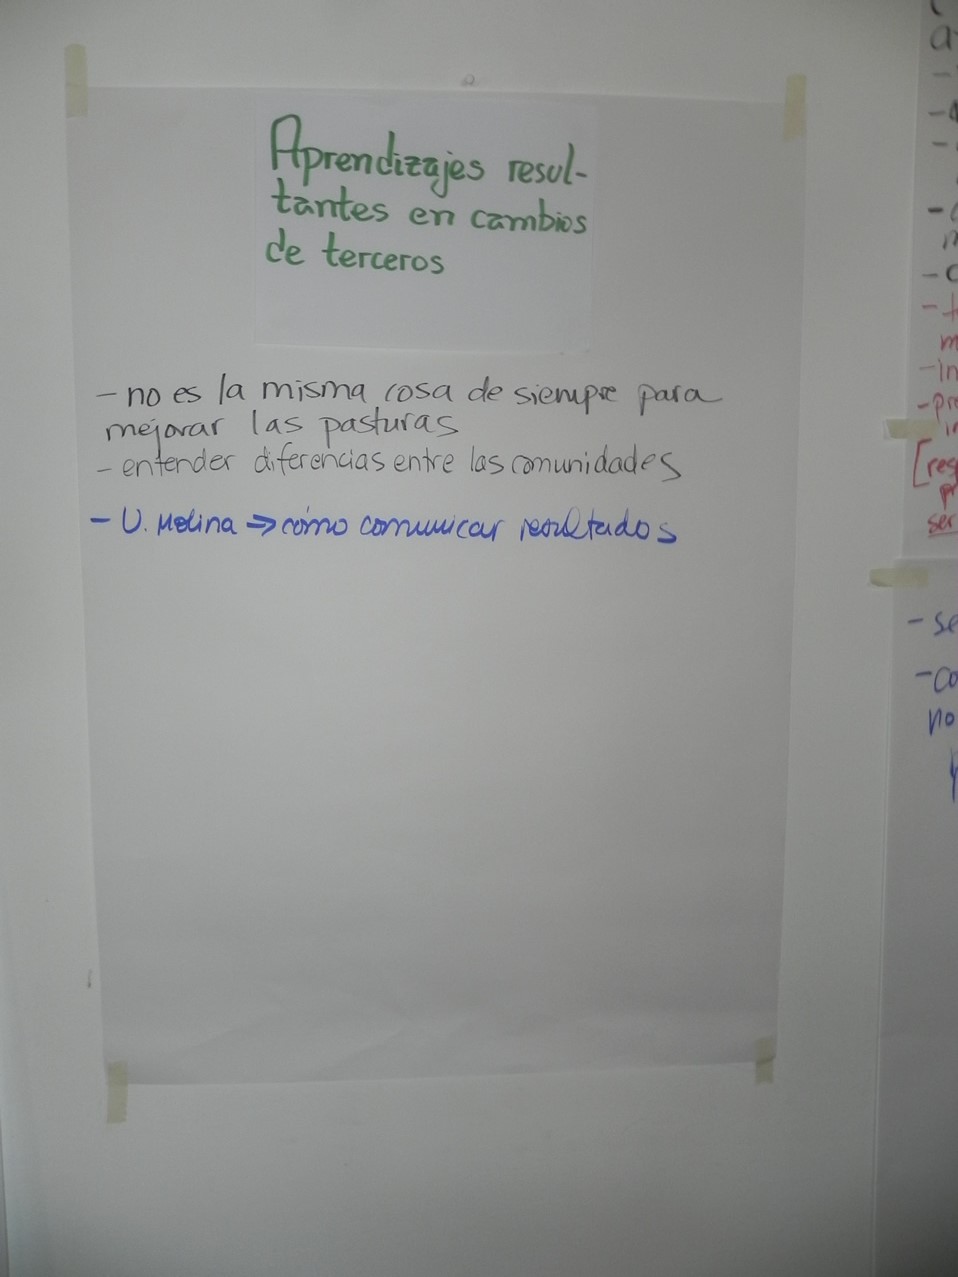 Aprendizajes resul-
tantes en cambios
de terceros
- no es la misma cosa de siempre para
mejorar las pasturas
- entender diferencias entre las comunidades
- U. Molina ⇒ cómo comunicar resultados
- in
[res
ser
- se
- co
no
y